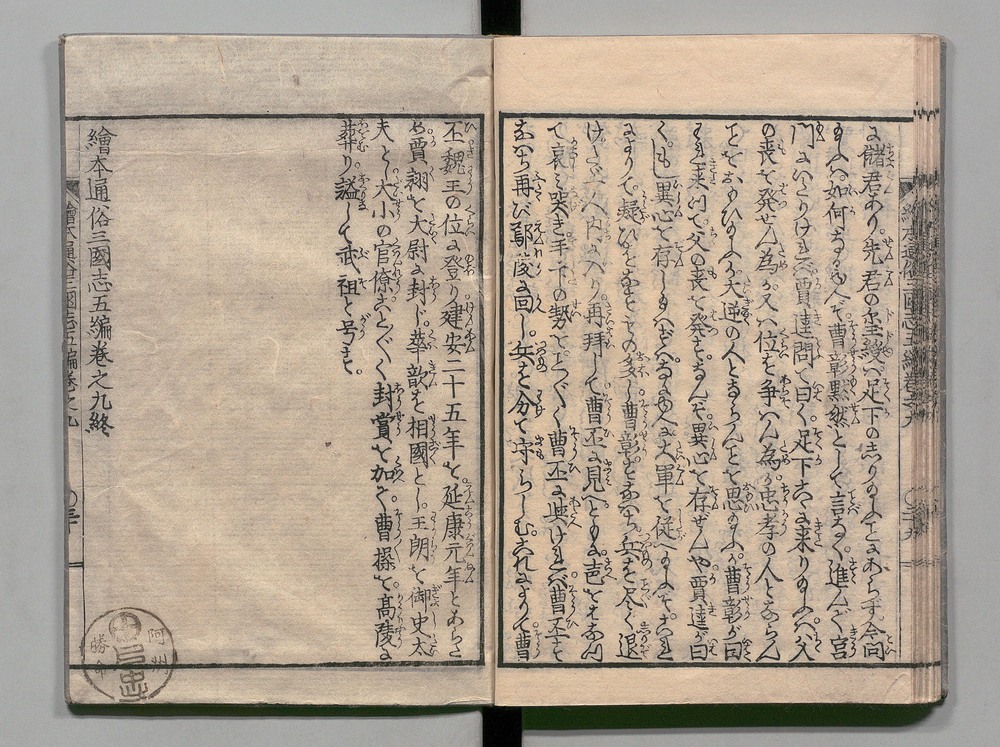 に儲君あり。先君の璽綬ハ足下の志りのふ所にあらず。今問
まふハ如何なるゆへぞ。曹彰黙然として言なく。進んで宮
門にいたりけれバ賈逵問て曰く足下こゝに来りのふハ父
の喪を発せん為か又ハ位を争ハん為か忠孝の人とならん
とをおもひのふか大逆の人とならんとを思のふか。曹彰が曰
われ来つて父の喪を発せんなんぞ異心を存ぜんや賈逵が曰
く。もし異心を存しのハずバなにゆへに大軍を従へのふぞ。
によりて。疑ひをなすもの多し曹彰すなハち兵を尽く退
けたゞ一人内に入り。再拝して曹丕に見へともに声をあげ
て哀み哭き手下の勢をこと〴〵く曹丕に与けれバ曹丕
すなハち再び鄢陵に回し。兵を分て守らしむこれによりて曹
丕魏王の位に登り建安二十五年を延康元年とあらため
賈詡を大尉に封じ。華歆を相國とし。王朗を御史大
夫とし大小の官僚こと〴〵く封賞を加へ。曹操を。高陵に
葬り。謚して武祖と号す。
繪本通俗三國志五編巻之九終
繪本通俗三國志五編巻之九
阿州
勝命